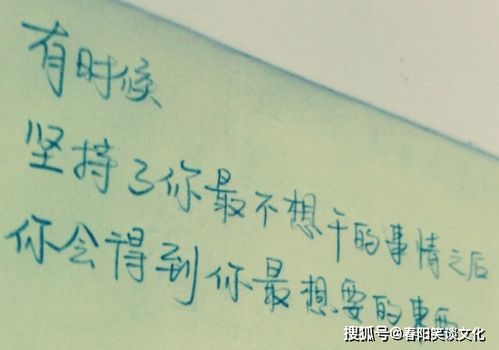 有时候
坚持了你最不想干的事情之后
你会得到你最想要的东西
搜狐号@春阳笑谈文化